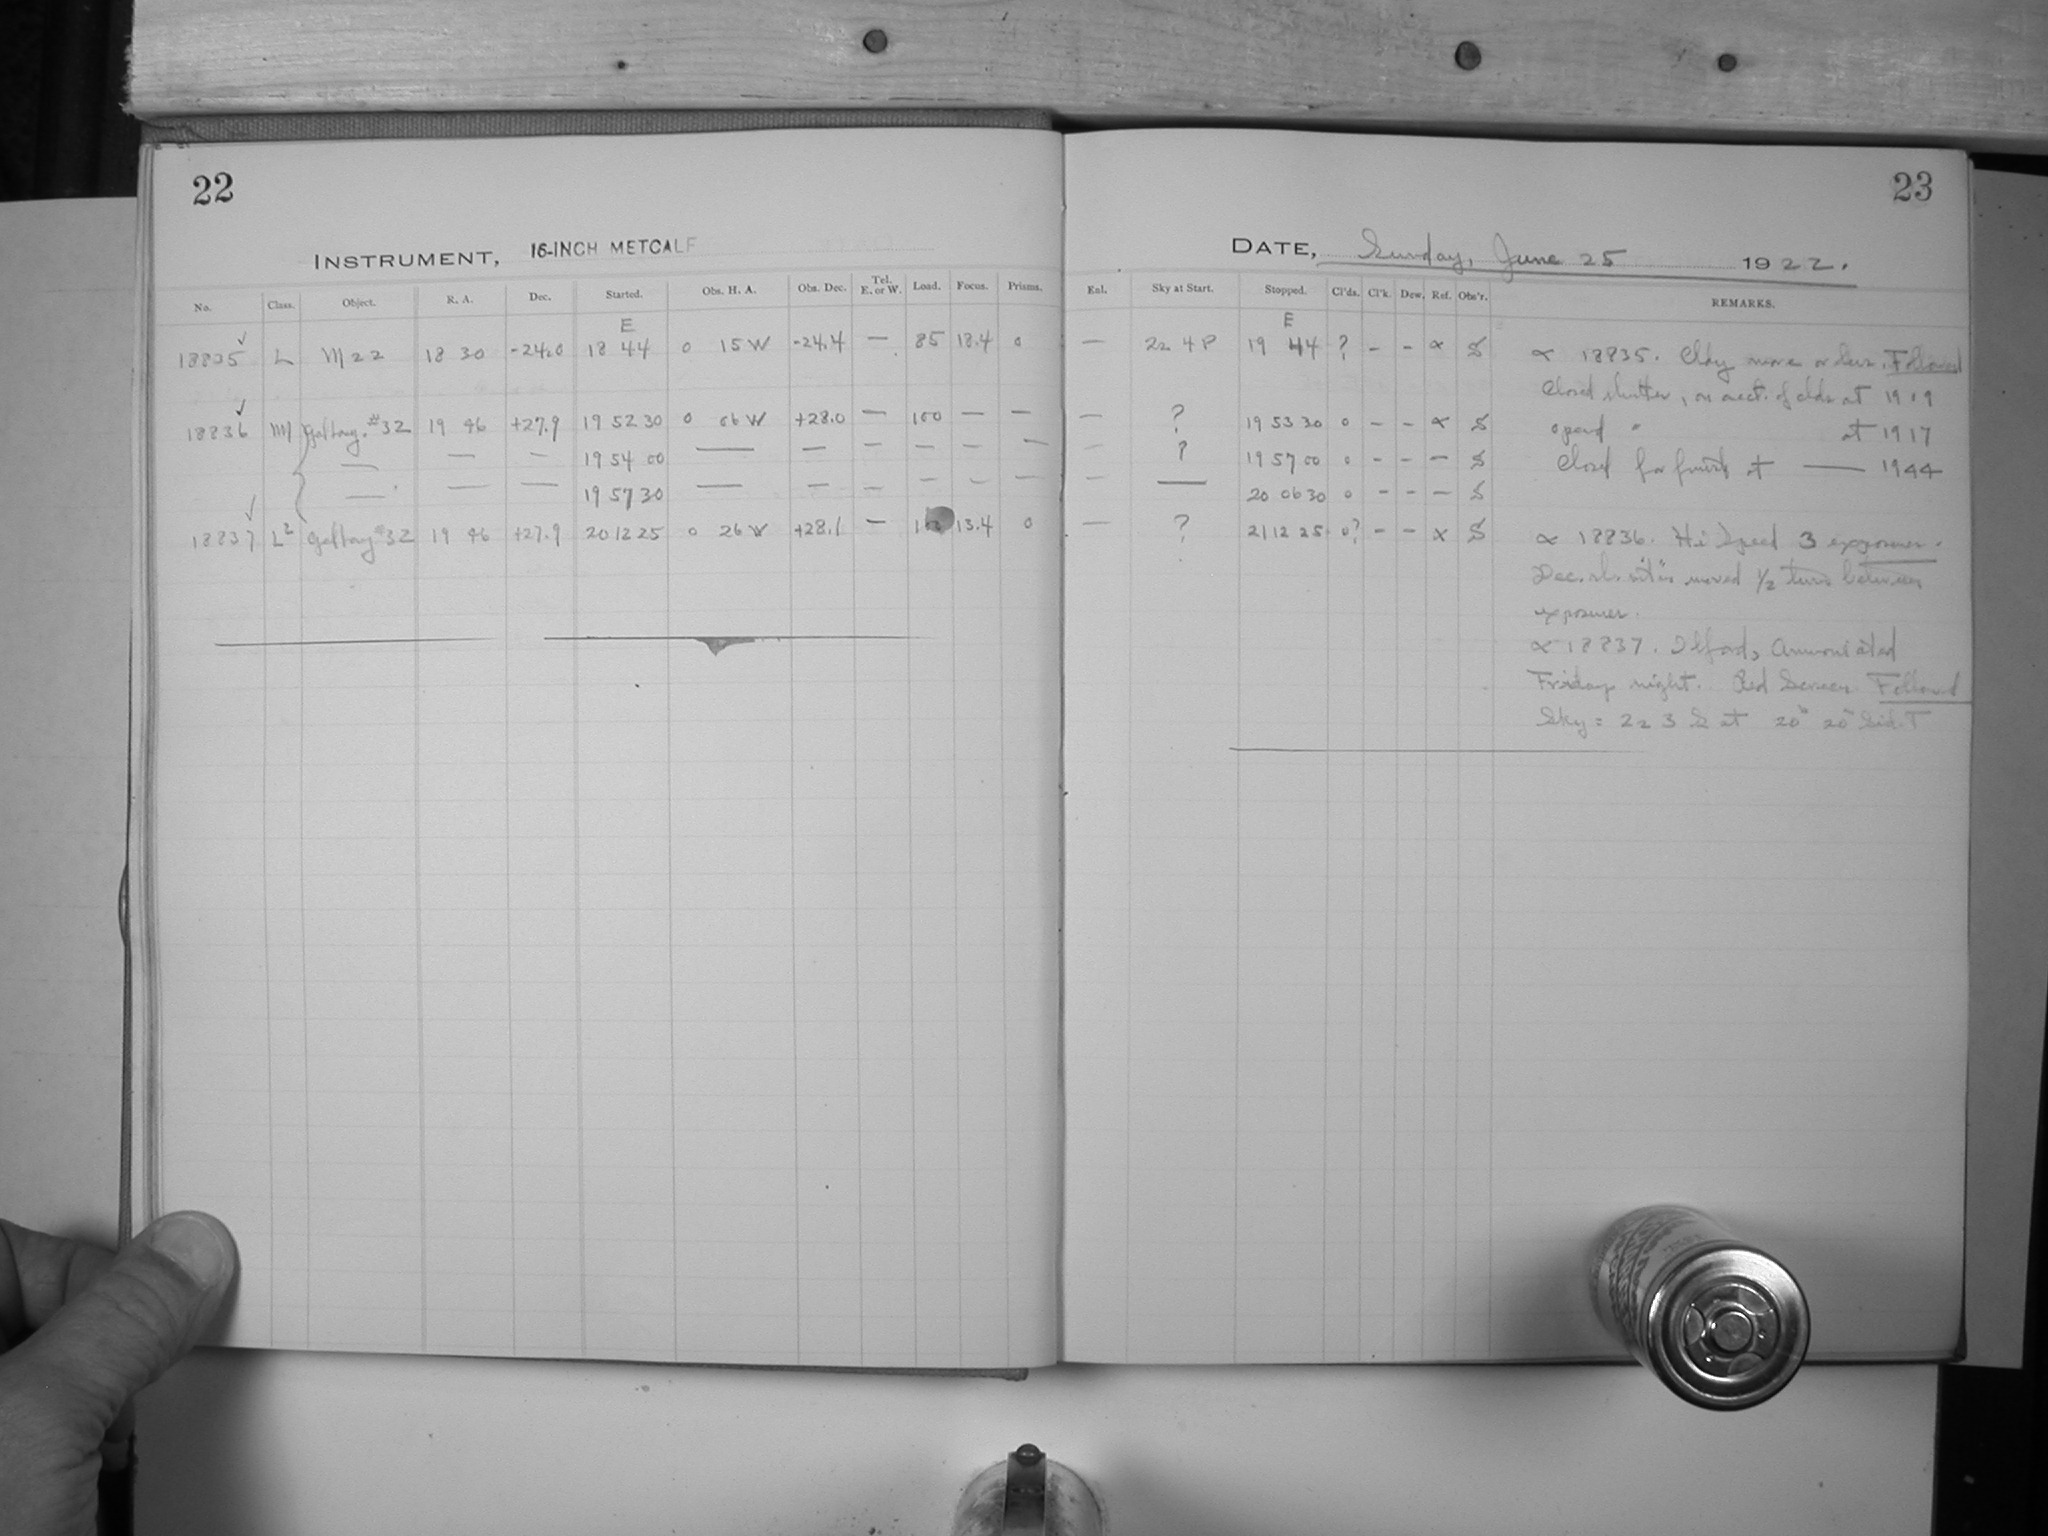 22
INSTRUMENT, 16-INCH METCALF
No. Class. Object. R. A. Dec. Started. Obs. H. A. Obs. Dec. Tel. E. or W. Load. Focus. Prisms.
E
18835 ✓ L M 22 18 30 -24.0 18 44 0 15 W -24.4 — 85 13.4 0
18836 ✓ M #32 19 46 +27.9 19 52 30 0 06 W +28.0 — 100 — —
— — — 19 54 00 — — — — — —
— — — 19 57 30 — — — — — —
18837 ✓ L² #32 19 46 +27.9 20 12 25 0 26 W +28.1 — 13.4 0
23
DATE, Sunday, June 25 1922.
Enl. Sky at Start. Stopped. Cl'ds. Cl'k. Dew. Ref. Obs'r. REMARKS.
E
— 22 4 P 19 44 ? - - ∝ S
— ? 19 53 30 0 - - ∝ S
— ? 19 57 00 0 - - — S
— — 20 06 30 0 - - — S
— ? 21 12 25 0? - - ∝ S
∝ 18835. Cldy more or less. Followed
Closed shutter, on acct. of clds at 19 09
opend " at 19 17
Closed for finish at — 1944
∝ 18836. Hi Speed 3 exposures.
Dec. moved 1/2 turn between
exposures.
∝ 18837. Ilford, Ammoniated
Friday night. Red Screen Followed
Sky = 22 3 S at 20ʰ 20ᵐ Sid. T